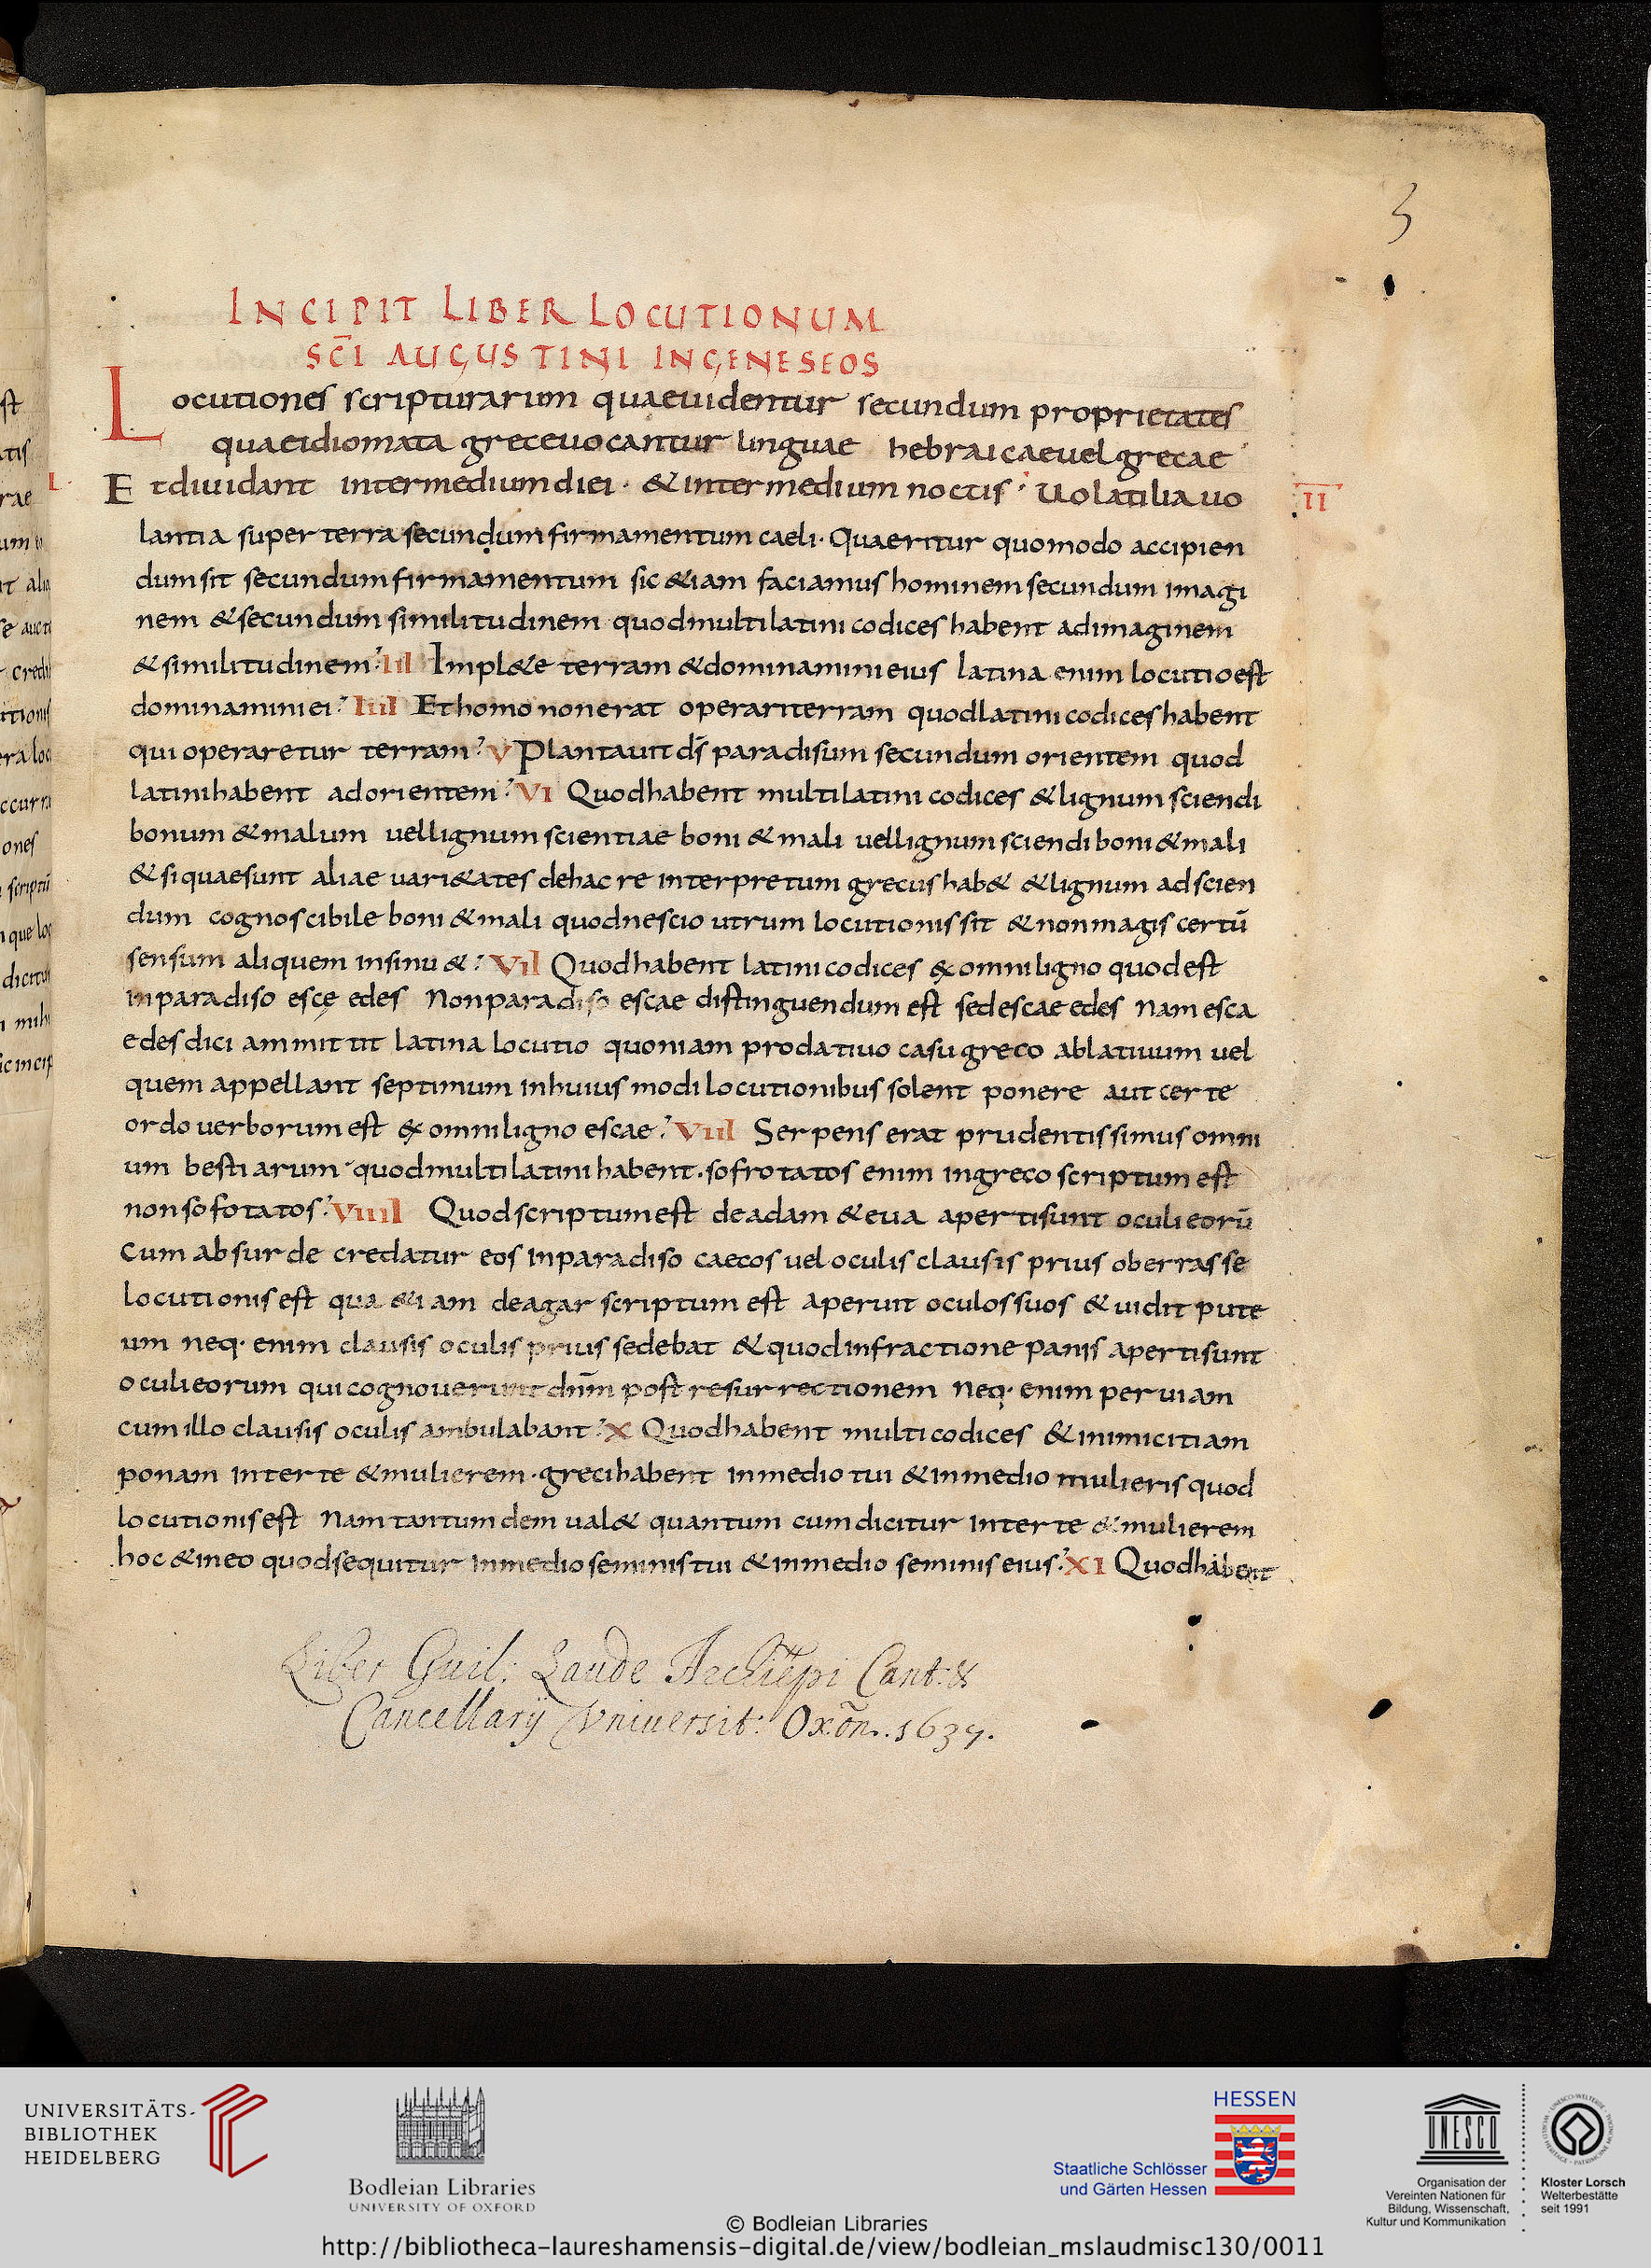 3
INCIPIT LIBER LOCUTIONUM
SC̄I AUGUSTINI INGENESEOS
Locutiones scripturarum quaeuidentur secundum proprietates
quaeidiomata greceuocantur linguae hebraicaeuel grecae
I. Et diuidant intermedium diei · & intermedium noctis · Uolatilia uo II
lantia super terra secundum firmamentum caeli · Quaeritur quomodo accipien
dum sit secundum firmamentum sic &iam faciamus hominem secundum imagi
nem & secundum similitudinem quod multi latini codices habent ad imaginem
& similitudinem III Impl&e terram & dominamini eius latina enim locutio est
dominamini ei IIII Et homo non erat operari terram quod latini codices habent
qui operaretur terram V Plantauit d̄s paradisum secundum orientem quod
latini habent ad orientem VI Quod habent multi latini codices & lignum sciendi
bonum & malum uel lignum scientiae boni & mali uel lignum sciendi boni & mali
& si quae sunt aliae uari&ates de hac re interpretum grecus hab& & lignum ad scien
dum cognoscibile boni & mali quod nescio utrum locutionis sit & non magis certū
sensum aliquem insinu& VII Quod habent latini codices ex omni ligno quod est
in paradiso escę edes Non paradiso escae distinguendum est sed escae edes Nam esca
edes dici ammittit latina locutio quoniam pro datiuo casu greco ablatiuum uel
quem appellant septimum in huius modi locutionibus solent ponere aut certe
ordo uerborum est ex omni ligno escae VIII Serpens erat prudentissimus omni
um bestiarum quod multi latini habent · sofrotatos enim in greco scriptum est
non sofotatos VIIII Quod scriptum est de adam & eua aperti sunt oculi eorū
Cum absurde credatur eos in paradiso caecos uel oculis clausis prius oberrasse
locutionis est qua &iam de agar scriptum est aperuit oculos suos & uidit pute
um neq· enim clausis oculis prius sedebat & quod in fractione panis aperti sunt
oculi eorum qui cognouerunt dn̄m post resurrectionem Neq· enim per uiam
cum illo clausis oculis ambulabant X Quod habent multi codices & inimicitiam
ponam inter te & mulierem · greci habent in medio tui & in medio mulieris quod
locutionis est Nam tantumdem ual& quantum cum dicitur inter te & mulierem
hoc & in eo quod sequitur in medio seminis tui & in medio seminis eius XI Quod habent
Liber Guil: Laude Archiep̄i Cant: &
Cancellarij Vniuersit: Oxōn. 1637.
UNIVERSITÄTS-
BIBLIOTHEK
HEIDELBERG
Bodleian Libraries
UNIVERSITY OF OXFORD
HESSEN
Staatliche Schlösser
und Gärten Hessen
UNESCO
Organisation der
Vereinten Nationen für
Bildung, Wissenschaft,
Kultur und Kommunikation
Kloster Lorsch
Welterbestätte
seit 1991
© Bodleian Libraries
http://bibliotheca-laureshamensis-digital.de/view/bodleian_mslaudmisc130/0011